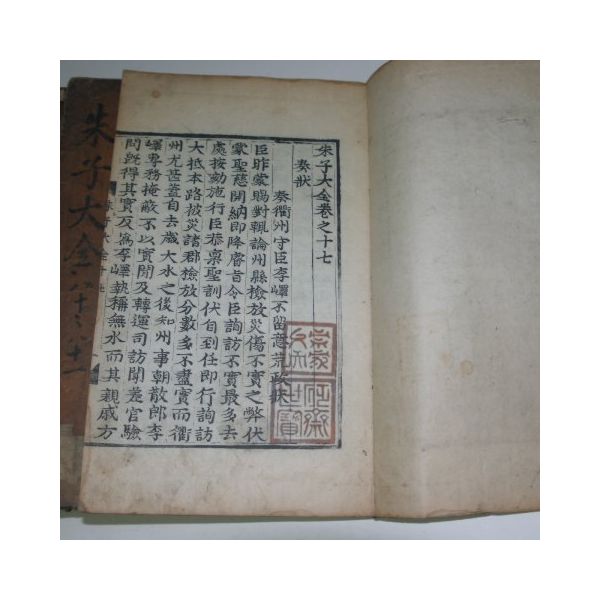 朱子大全卷之十七
奏狀
奏衢州守臣李嶧不留意荒政狀
臣昨蒙賜對輒論州縣檢放災傷不實之弊伏
蒙聖慈開納即降睿旨令臣詢訪不實最多去
處按劾施行臣恭禀聖訓伏自到任即行詢訪
大抵本路被災諸郡檢放分數多不盡實而衢
州尤甚蓋自去歲大水之後知州事朝散郎李
嶧專務掩蔽不以實聞及轉運司訪聞差官驗
問旣得其實反爲李嶧執稱無水而其親戚方
朱子大全